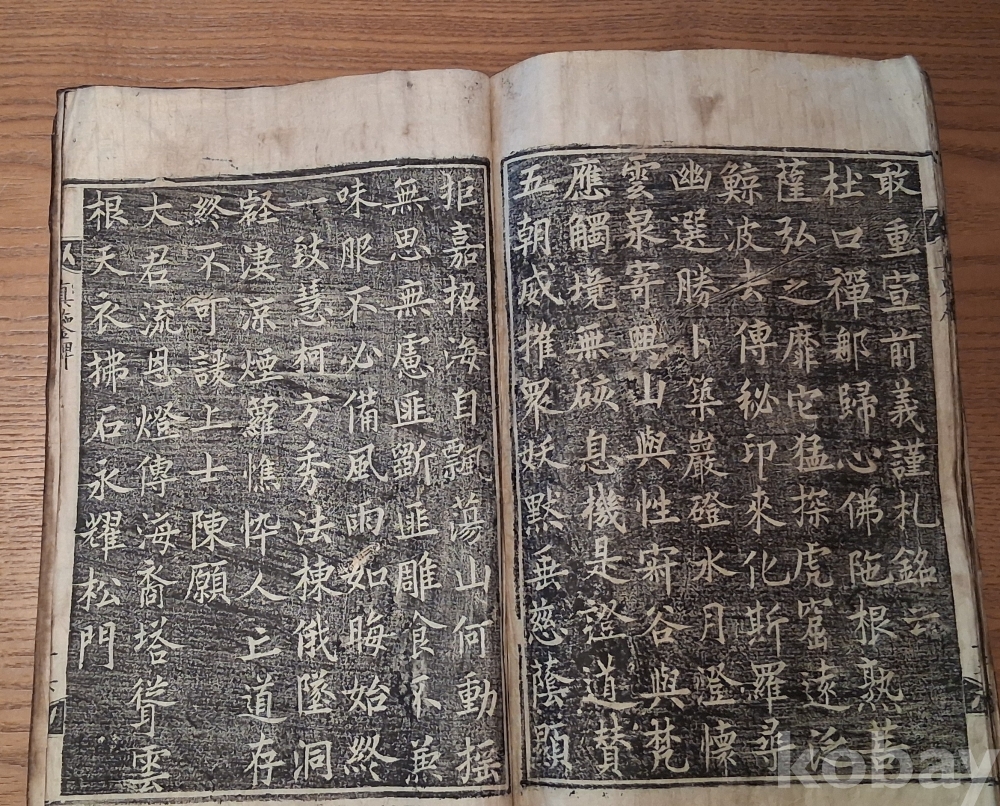 敢重宣前義謹札銘云
杜口禪那歸心佛陁根熟菩
薩弘之靡它猛探虎窟遠泛
鯨波去傳秘印來化斯羅尋
幽選勝卜築巖磴水月澄懷
雲泉寄興山與性寂谷與梵
應觸境無硋息機是證道贊
五朝威摧衆妖默垂慈蔭顯
拒嘉招海自飄蕩山何動搖
無思無慮匪斲匪雕食不兼
味服不必備風雨如晦始終
一致慧柯方秀法棟俄墜洞
壑凄涼煙蘿憔悴人亡道存
終不可諼上士陳願
大君流恩燈傳海裔塔聳雲
根天衣拂石永耀松門
kobay